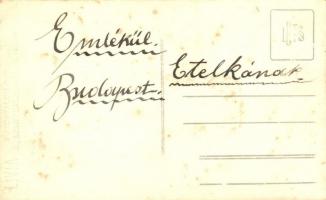 Emlékül.
Budapest.
Etelkának